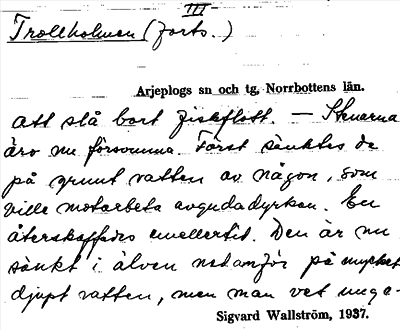 III
Trollholmen (forts.)
Arjeplogs sn och tg, Norrbottens län.
att slå bort fiskflott. — Stenarna
äro nu försvunna. Först sänktes de
på grunt vatten av någon, som
ville motarbeta avgudadyrkan. En
återskaffades emellertid. Den är nu
sänkt i älven nedanför på mycket
djupt vatten, men man vet unge-
Sigvard Wallström, 1937.